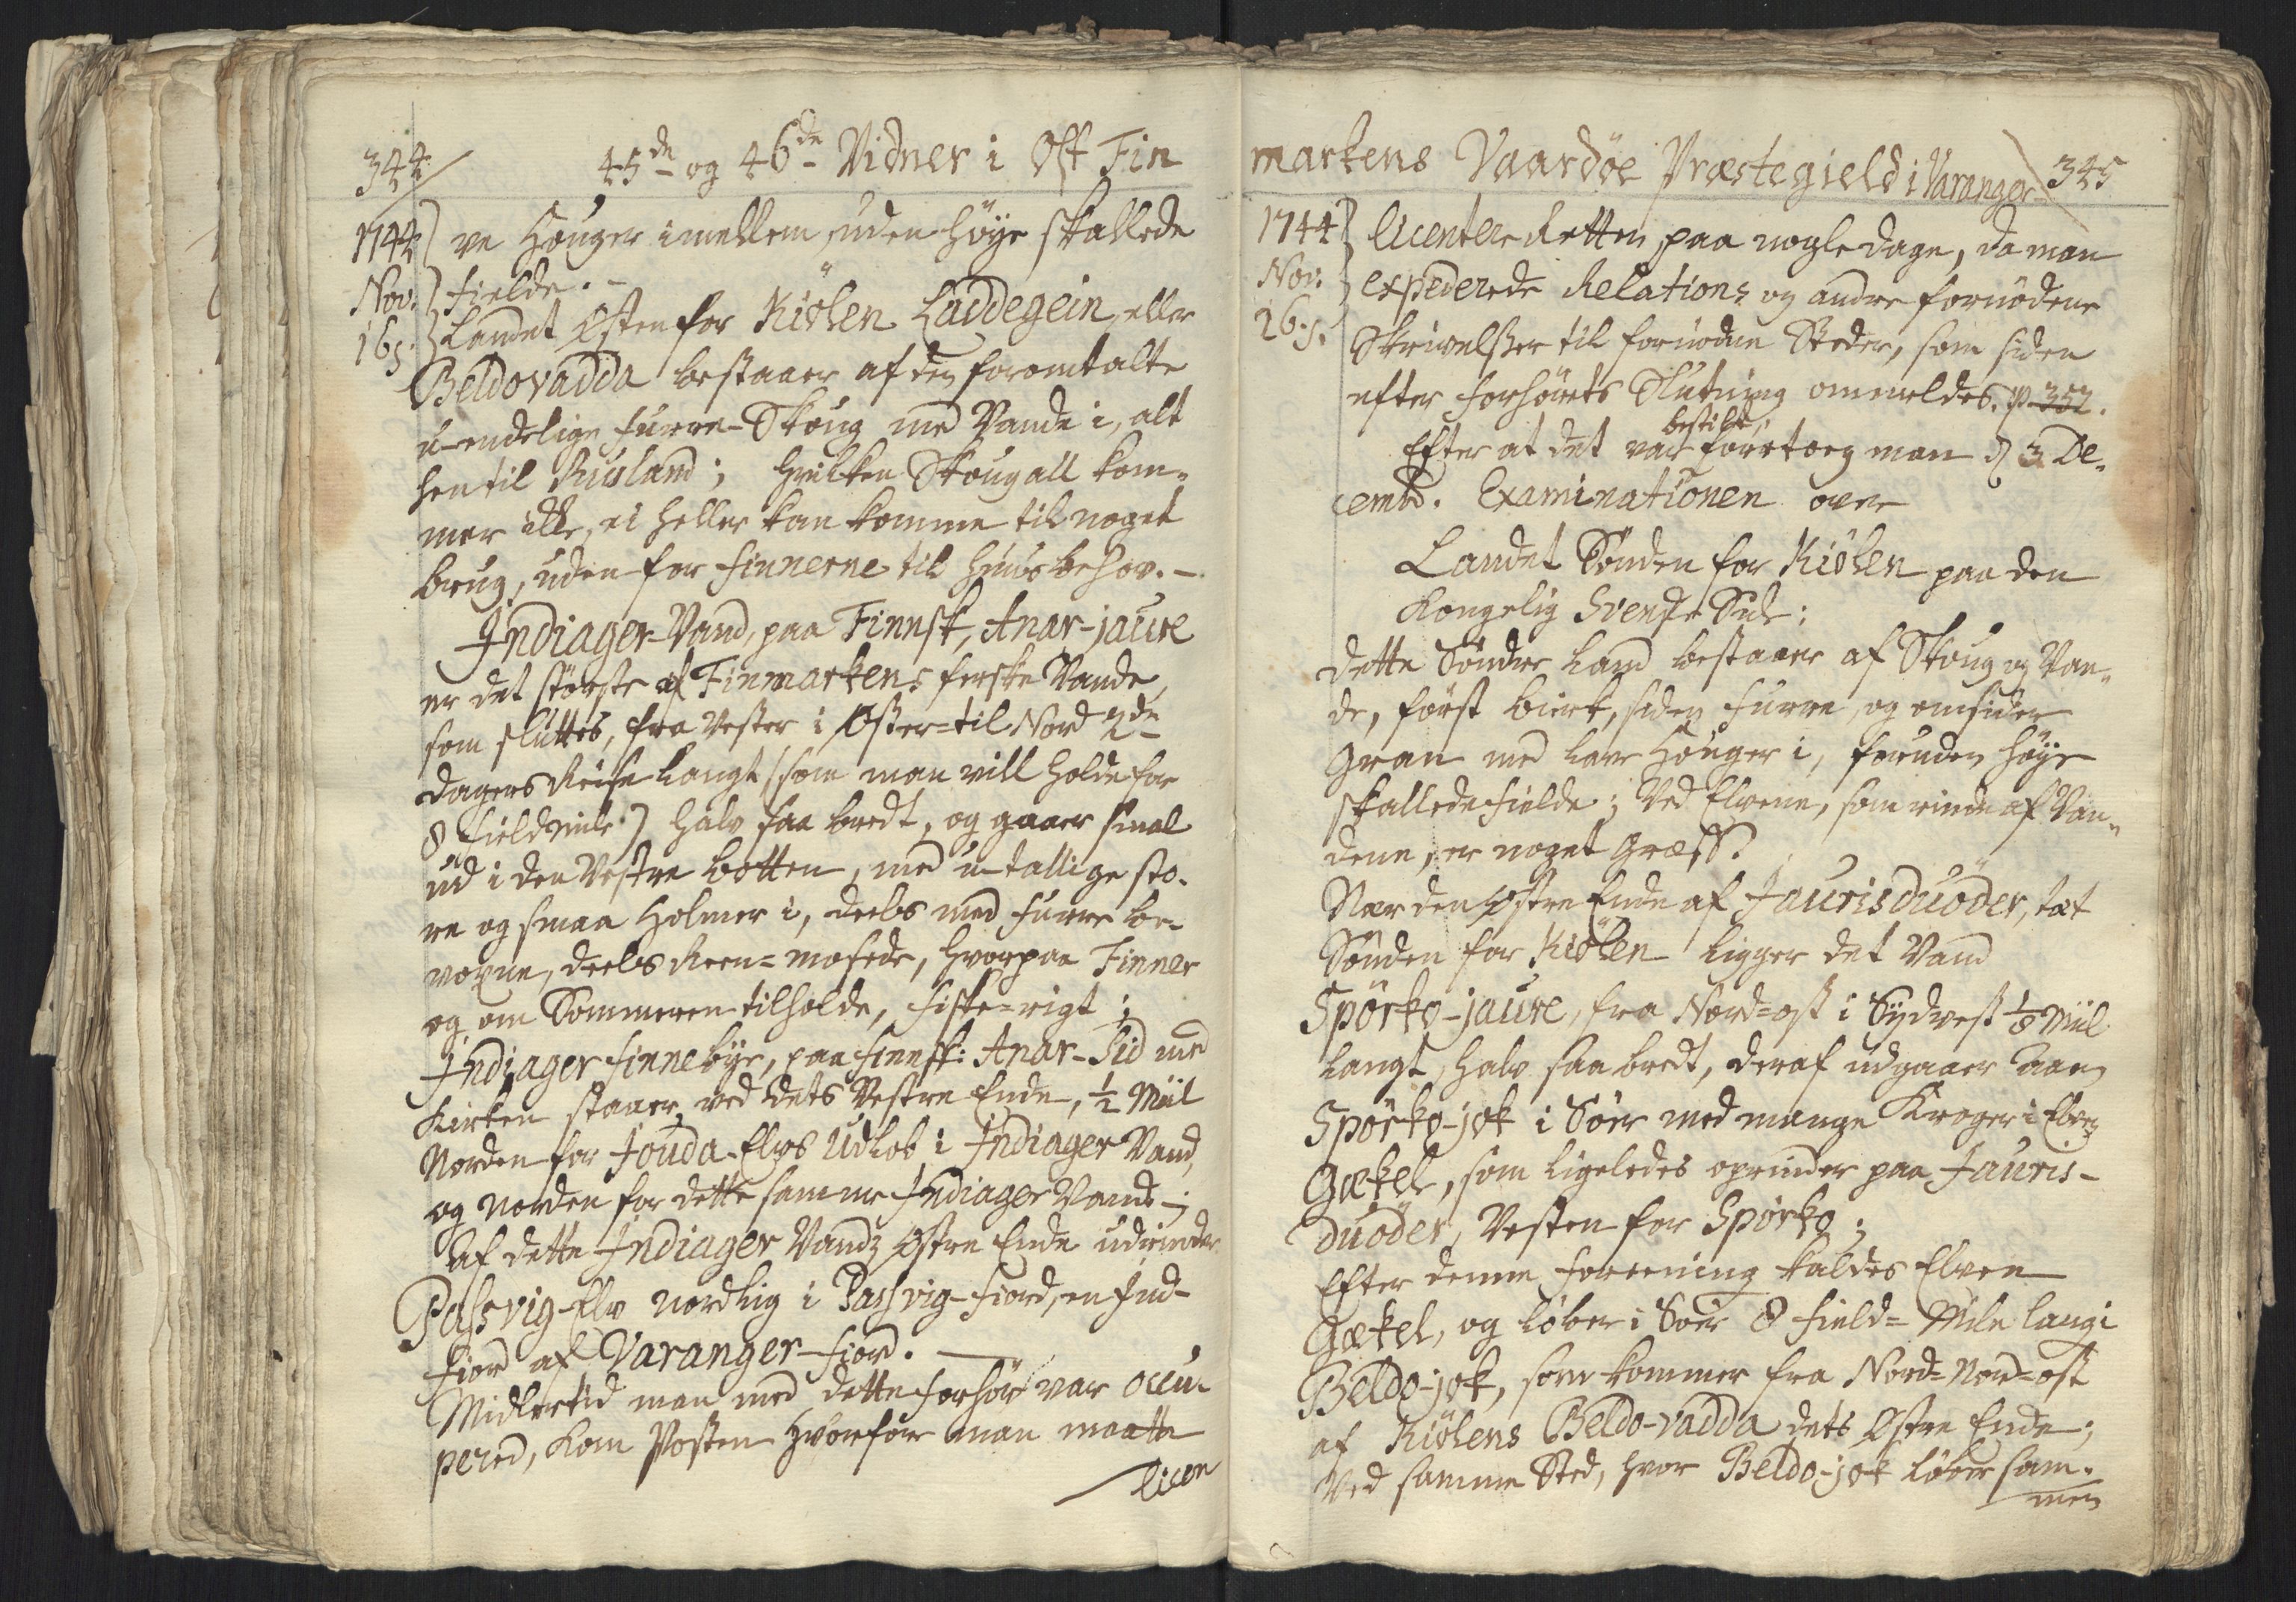 344
45de og 46de Vidner i Ost Fin
1744
Nov.
16s.
ve Houger imellem, uden höye skallede
Fielde. -
Landet Osten for Kiölen Laddegein, eller
Beldovadda bestaaer af den foromtalte
u-endelige Furre-Skoug med Vande i, alt
hen til Rusland; hvilken Skoug all kom-
mer ikke, ei heller kan komme til noget
brug, uden for Finnerne til Huusbehov. -
Indiager-Vand, paa Finnsk, Anar-jaure
er det störste af Finmarkens ferske Vande,
som sluttes, fra Vester i Oster-til Nord 2de
dagers Reise langt (som man vill holde for
8 Field Miile.) halv saa bredt, og gaaer smal
ud i den Vestre botten, med u-tallige sto-
re og smaa Holmer i, deels med Furre be-
voxne, deels Reen-mosede, hvorpaa Finner
og om Sommeren tilholde, fiske-rigt;
Indiager Finnebye, paa Finnsk: Anar-Sid med
Kirken staaer ved dets Vestre Ende, 1/2 Miil
Norden for Jouda-Elvs Udlob i Indiager Vand,
og Norden for dette samme Indiager Vand;
Af dette Indiager Vandz Ostre Ende udrinder
Passvig-Elv nordlig i Passvig-Fiord, en Ind-
fiord af Varanger-fiord.
Midlertid man med dette forhör var occu-
pered, kom Posten hvorfor man maatte
licen
markens Vaardöe Præstegield i Varanger
345
1744
Nov.
16.s.
licentere Retten paa nogle dage, da man
expederede Relations og andre fornödene
Skrivelsser til fornödne Steder, som siden
efter forhörets Slutning ommeldes. p. 352.
bestilt,
Efter at det var foretoeg man d 3 De-
cembr. Examinationen over
Landet Sönden for Kiölen paa den
Kongelig Svenske Side:
Dette Söndre Land bestaaer af Skoug og Van-
de, först birk, siden Furre, og omsider
Gran med lave Houger i, foruden höye
skallede Fielde; Ved Elvene, som rinde af Van-
dene, er noget Græss.
Nær den Ostre Ende af Jaurisduöder, tæt
Sönden for Kiölen ligger det Vand
Spörko-jaure, fra Nord-ost i Sydvest 1/8 Miil
langt, halv saa bredt, deraf udgaaer Aaen
Spörko-jok i Söer med mange Kroger i Elven
Gækel, som ligeledes oprinder paa Jauris-
duöder, Vesten for Spörko;
Efter denne foreening kaldes Elven
Gækel, og löber i Söer 8 Field-Miile lang i
Beldo-jok, som kommer fra Nord-Nord-ost
af Kiölens Beldo-vadda dets Ostre Ende;
Ved samme Sted, hvor Beldo-jok löber sam-
men